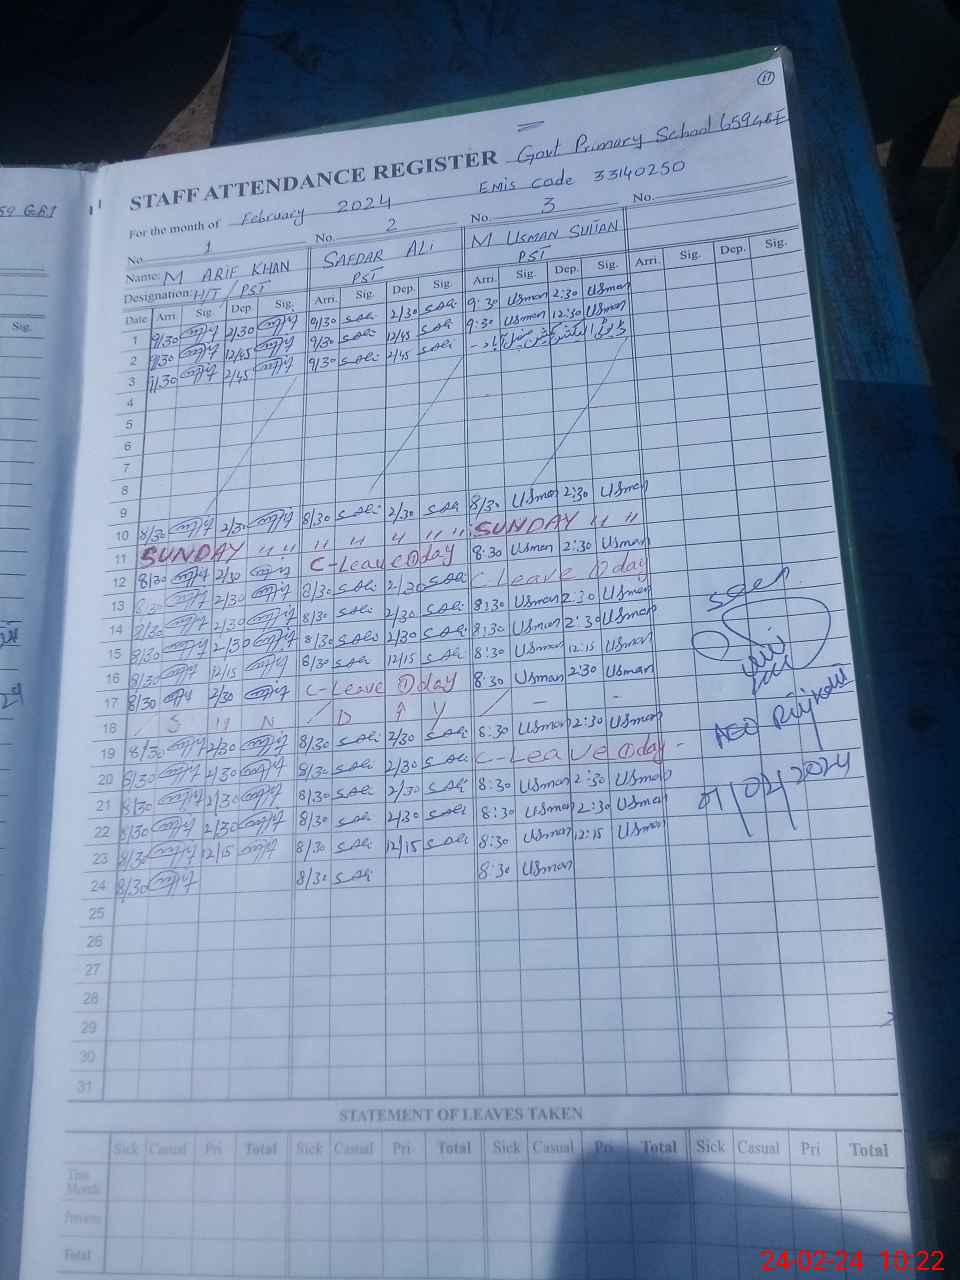 17
59 GB1
STAFF ATTENDANCE REGISTER Govt Primary School 659 GB I
For the month of February 2024 Emis Code 33140250
No. 1 No. 2 No. 3 No.
Name: M ARIF KHAN SAFDAR ALI M USMAN SULTAN
Designation: H/T / PST PST PST
Sig. Date Arri. Sig. Dep. Sig. Arri. Sig. Dep. Sig. Arri. Sig. Dep. Sig. Arri. Sig. Dep. Sig.
1 9/30 2/30 9/30 S Ali 2/30 S Ali 9:30 Usman 2:30 Usman
2 9/30 12/45 9/30 S Ali 12/45 S Ali 9:30 Usman 12:30 Usman
3 9/30 2/45 9/30 S Ali 2/45 S Ali
4
5
6
7
8
9
10 8/30 2/30 8/30 S Ali 2/30 S Ali 8/30 Usman 2:30 Usman
11 SUNDAY " " " " " " " SUNDAY " "
12 8/30 2/30 C-Leave 1 day 8:30 Usman 2:30 Usman
13 8/30 2/30 8/30 S Ali 2/30 S Ali C Leave 1 day
14 8/30 2/30 8/30 S Ali 2/30 S Ali 8:30 Usman 2:30 Usman
15 8/30 2/30 8/30 S Ali 2/30 S Ali 8:30 Usman 2:30 Usman
16 8/30 12/15 8/30 S Ali 12/15 S Ali 8:30 Usman 12:15 Usman
17 8/30 2/30 C-Leave 1 day 8:30 Usman 2:30 Usman
18 S U N D A Y
19 8/30 2/30 8/30 S Ali 2/30 S Ali 8:30 Usman 2:30 Usman
20 8/30 2/30 8/30 S Ali 2/30 S Ali C-Leave 1 day -
21 8/30 2/30 8/30 S Ali 2/30 S Ali 8:30 Usman 2:30 Usman
22 8/30 2/30 8/30 S Ali 2/30 S Ali 8:30 Usman 2:30 Usman
23 8/30 12/15 8/30 S Ali 12/15 S Ali 8:30 Usman 12:15 Usman
24 8/30 8/30 S Ali 8:30 Usman
25
26
27
28
29
30
31
Seen
AEO
/02/2024
STATEMENT OF LEAVES TAKEN
Sick Casual Pri Total Sick Casual Pri Total Sick Casual Pri Total Sick Casual Pri Total
This Month
Previous
Total
24-02-24 10:22